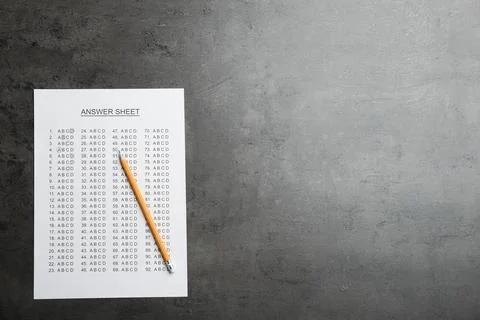 ANSWER SHEET
1. A B C D 24. A B C D 47. A B C D 70. A B C D
2. A B C D 25. A B C D 48. A B C D 71. A B C D
3. A B C D 26. A B C D 49. A B C D 72. A B C D
4. A B C D 27. A B C D 50. B C D 73. A B C D
5. A B C D 28. A B C D 51. B C D 74. A B C D
6. A B C D 29. A B C D 52. B C D 75. A B C D
7. A B C D 30. A B C D 53. C D 76. A B C D
8. A B C D 31. A B C D 54. A D 77. A B C D
9. A B C D 32. A B C D 55. A D 78. A B C D
10. A B C D 33. A B C D 56. A B 79. A B C D
11. A B C D 34. A B C D 57. A B C 80. A B C D
12. A B C D 35. A B C D 58. A B C 81. A B C D
13. A B C D 36. A B C D 59. A B C D A B C D
14. A B C D 37. A B C D 60. A B C D A B C D
15. A B C D 38. A B C D 61. A B C D A B C D
16. A B C D 39. A B C D 62. A B C D B C D
17. A B C D 40. A B C D 63. A B C D 86. B C D
18. A B C D 41. A B C D 64. A B C D 87. C D
19. A B C D 42. A B C D 65. A B C D 88. C D
20. A B C D 43. A B C D 66. A B C D 89. A D
21. A B C D 44. A B C D 67. A B C D 90. A B
22. A B C D 45. A B C D 68. A B C D 91. A B
23. A B C D 46. A B C D 69. A B C D 92. A B C